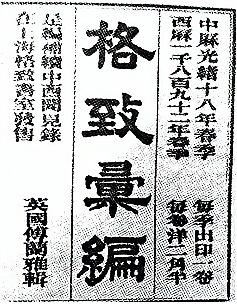 中厤光緒十八年春季 每季出印一卷
西厤一千八百九十二年春季 每卷洋二角半
格致彙編
是編補續中西聞見錄
在上海格致書室發售
英國傅蘭雅輯